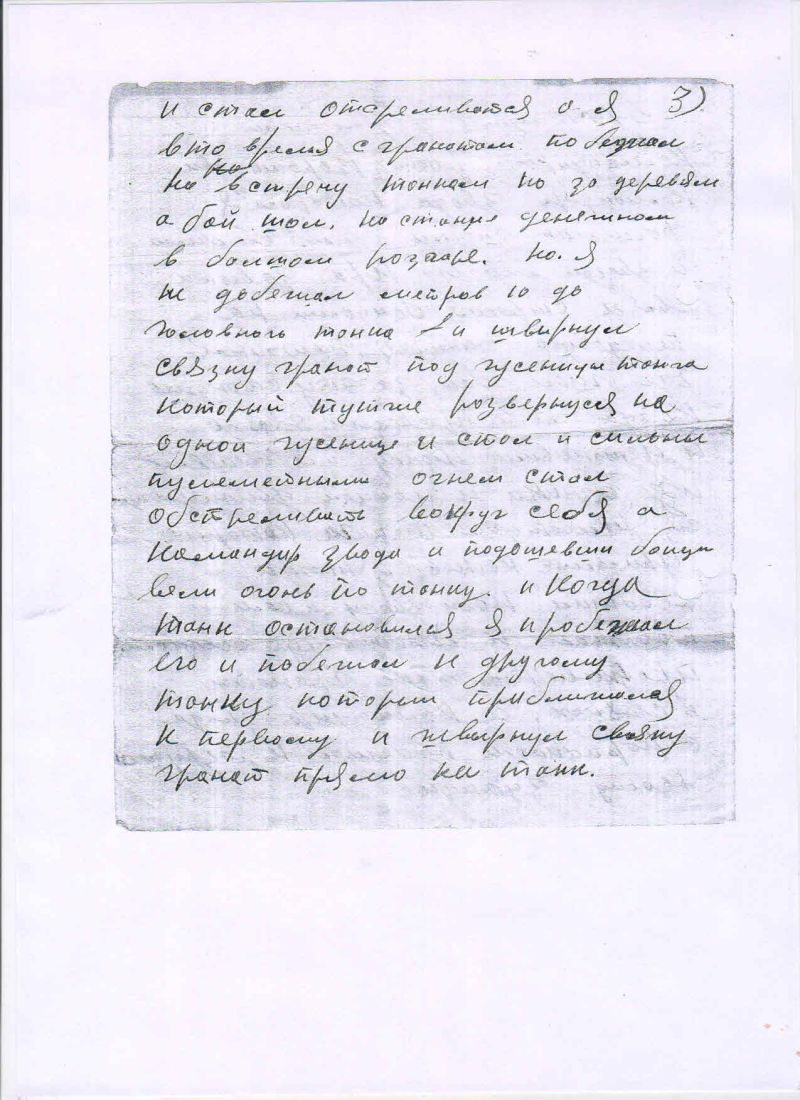 и стал отсреливатся а. я 3)
в то время с гранатам побежал
на
на встречу танкам по за деревям
а бой шол. на станцие
в болшом розгаре. но. я
не добежал метров 10 до
головного танка и швирнул
связку гранат под гусеницу танка
который тутже розвернуся на
одной гусенице и стал и сильны
пулеметными огнем стал
обстреливать вокруг себя а
командир звода и подошевши бойци
вели огонь по танку. и когда
танк остановился я пробежал
его и побежал к другому
танку которий приближался
к первому и швирнул связку
гранат прямо на танк.